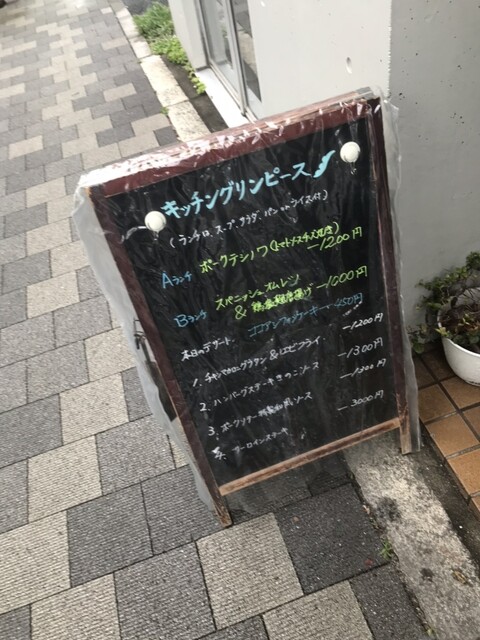 キッチングリンピース
(ランチはスープ、サラダ、パンorライス付)
Aランチ ポークチャップ(トマトソースチーズ焼き) —1200円
Bランチ スパニッシュオムレツ & 鶏唐揚げ —1000円
本日のデザート、ココアシフォンケーキ—450円
1. チキンマカログラタン&エビフライ —1200円
2. ハンバーグステーキきのこソース —1300円
3. ポークソテー 和風ソース —1300円
4. サーロインステーキ —3000円